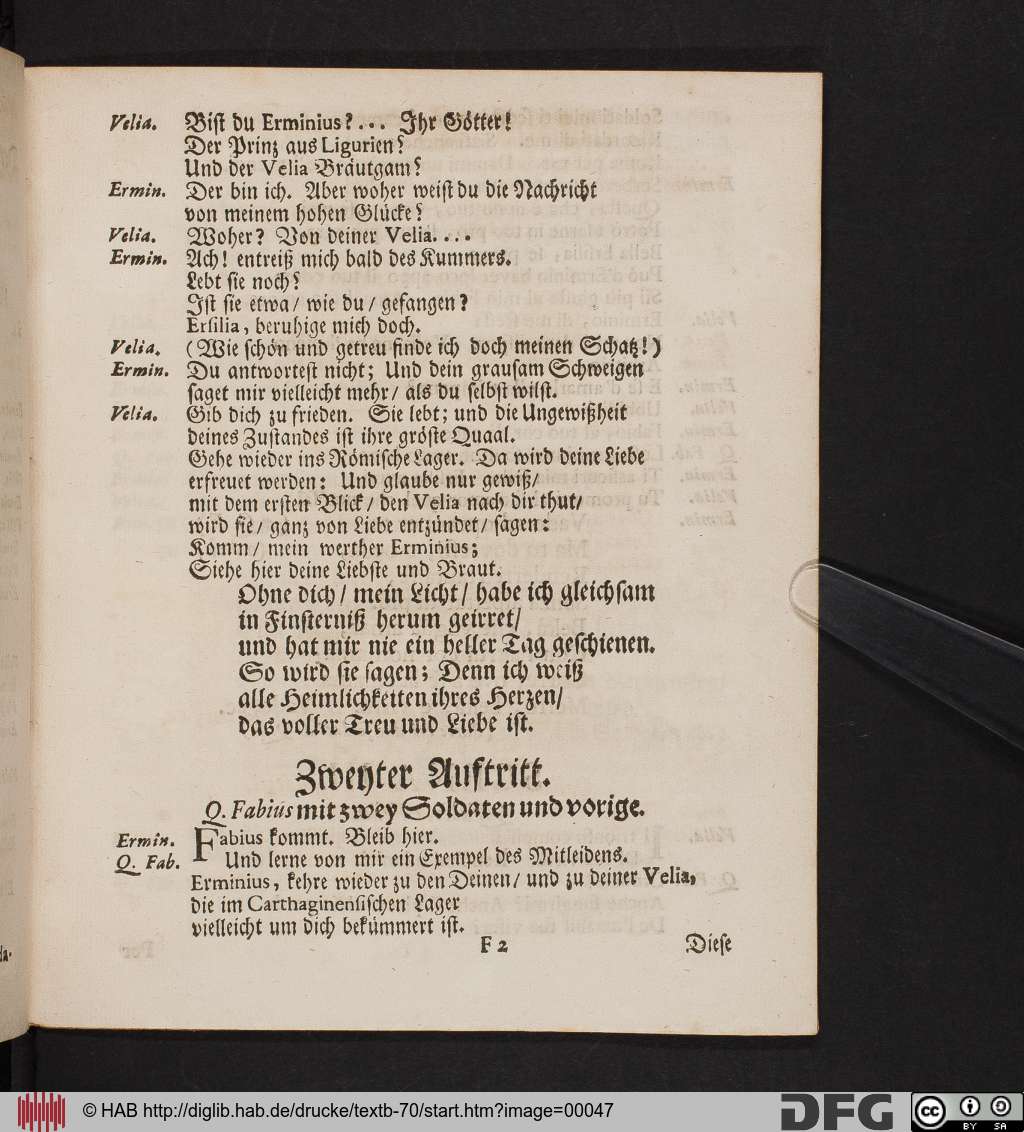 Velia. Bist du Erminius?... Ihr Götter!
Der Prinz aus Ligurien?
Und der Velia Bräutgam?
Ermin. Der bin ich. Aber woher weist du die Nachricht
von meinem hohen Glücke?
Velia. Woher? Von deiner Velia....
Ermin. Ach! entreiß mich bald des Kummers.
Lebt sie noch?
Ist sie etwa/ wie du/ gefangen?
Ersilia, beruhige mich doch.
Velia. (Wie schön und getreu finde ich doch meinen Schatz!)
Ermin. Du antwortest nicht; Und dein grausam Schweigen
saget mir vielleicht mehr/ als du selbst wilst.
Velia. Gib dich zu frieden. Sie lebt; und die Ungewißheit
deines Zustandes ist ihre gröste Quaal.
Gehe wieder ins Römische Lager. Da wird deine Liebe
erfreuet werden: Und glaube nur gewiß/
mit dem ersten Blick/ den Velia nach dir thut/
wird sie/ ganz von Liebe entzündet/ sagen:
Komm/ mein werther Erminius;
Siehe hier deine Liebste und Braut.
Ohne dich/ mein Licht/ habe ich gleichsam
in Finsterniß herum geirret/
und hat mir nie ein heller Tag geschienen.
So wird sie sagen; Denn ich weiß
alle Heimlichkeiten ihres Herzen/
das voller Treu und Liebe ist.
Zweyter Auftritt.
Q. Fabius mit zwey Soldaten und vorige.
Ermin. Fabius kommt. Bleib hier.
Q. Fab. Und lerne von mir ein Exempel des Mitleidens.
Erminius, kehre wieder zu den Deinen/ und zu deiner Velia,
die im Carthaginensischen Lager
vielleicht um dich bekümmert ist.
F 2 Diese
© HAB http://diglib.hab.de/drucke/textb-70/start.htm?image=00047
DFG
cc BY SA